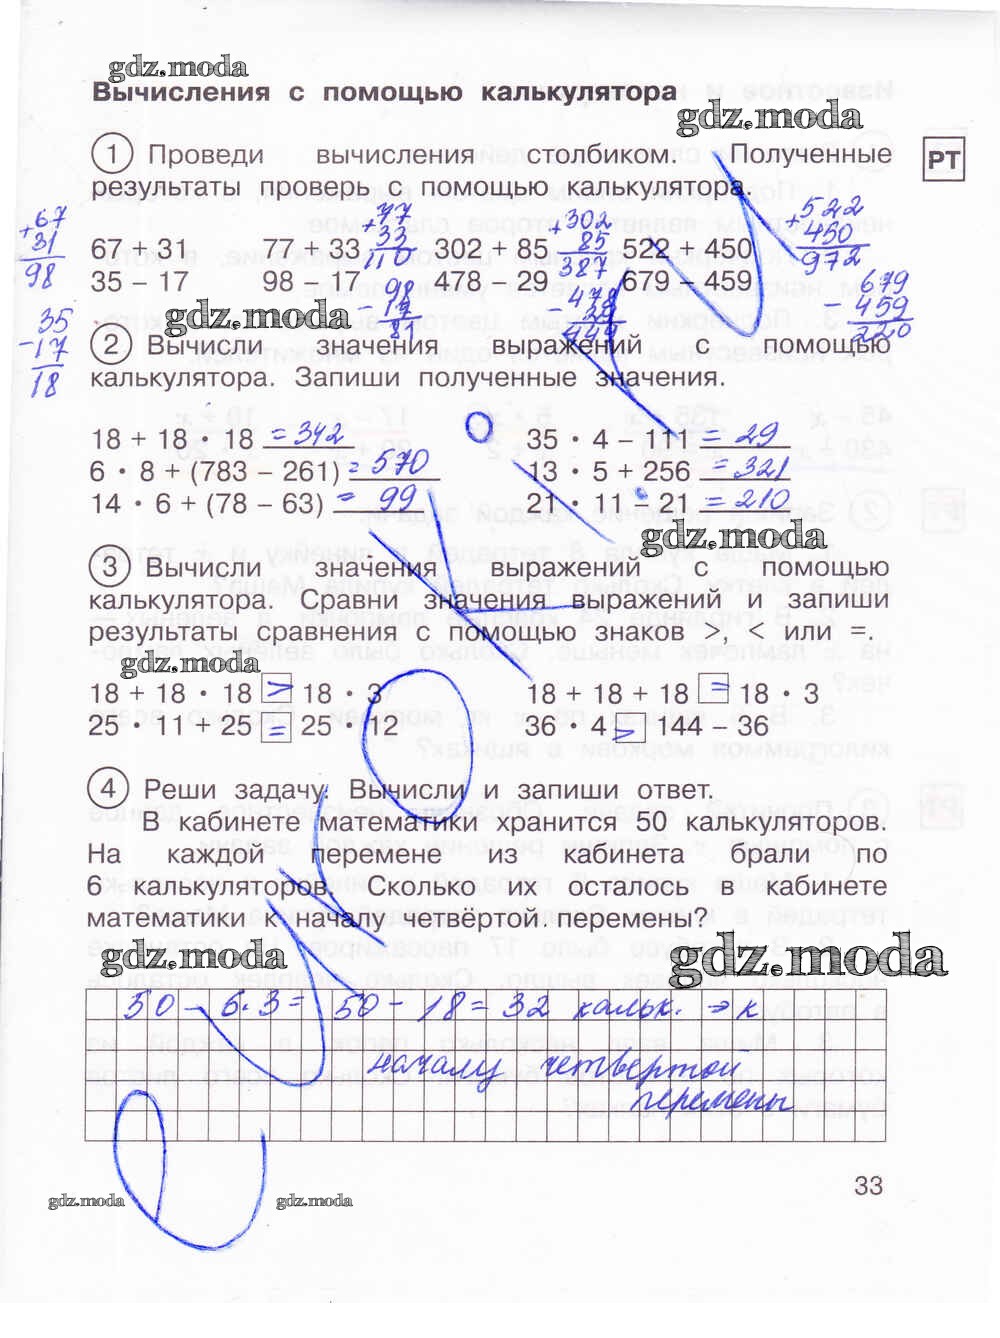 gdz.moda
Вычисления с помощью калькулятора
gdz.moda
1 Проведи вычисления столбиком. Полученные
РТ
результаты проверь с помощью калькулятора.
+ 67
31
98
+ 77
33
110
+ 302
85
387
+ 522
450
972
67 + 31 77 + 33 302 + 85 522 + 450
35 – 17 98 – 17 478 – 29 679 – 459
- 35
17
18
- 98
17
81
- 478
29
449
- 679
459
220
gdz.moda
2 Вычисли значения выражений с помощью
калькулятора. Запиши полученные значения.
18 + 18 · 18 = 342 35 · 4 – 111 = 29
6 · 8 + (783 – 261) = 570 13 · 5 + 256 = 321
14 · 6 + (78 – 63) = 99 21 · 11 – 21 = 210
gdz.moda
3 Вычисли значения выражений с помощью
калькулятора. Сравни значения выражений и запиши
результаты сравнения с помощью знаков >, < или =.
gdz.moda
18 + 18 · 18 > 18 · 3 18 + 18 + 18 = 18 · 3
25 · 11 + 25 = 25 · 12 36 · 4 > 144 – 36
4 Реши задачу. Вычисли и запиши ответ.
В кабинете математики хранится 50 калькуляторов.
На каждой перемене из кабинета брали по
6 калькуляторов. Сколько их осталось в кабинете
математики к началу четвёртой перемены?
gdz.moda
gdz.moda
50 - 6·3 = 50 - 18 = 32 кальк. ⇒ к
началу четвертой
перемены
33
gdz.moda
gdz.moda